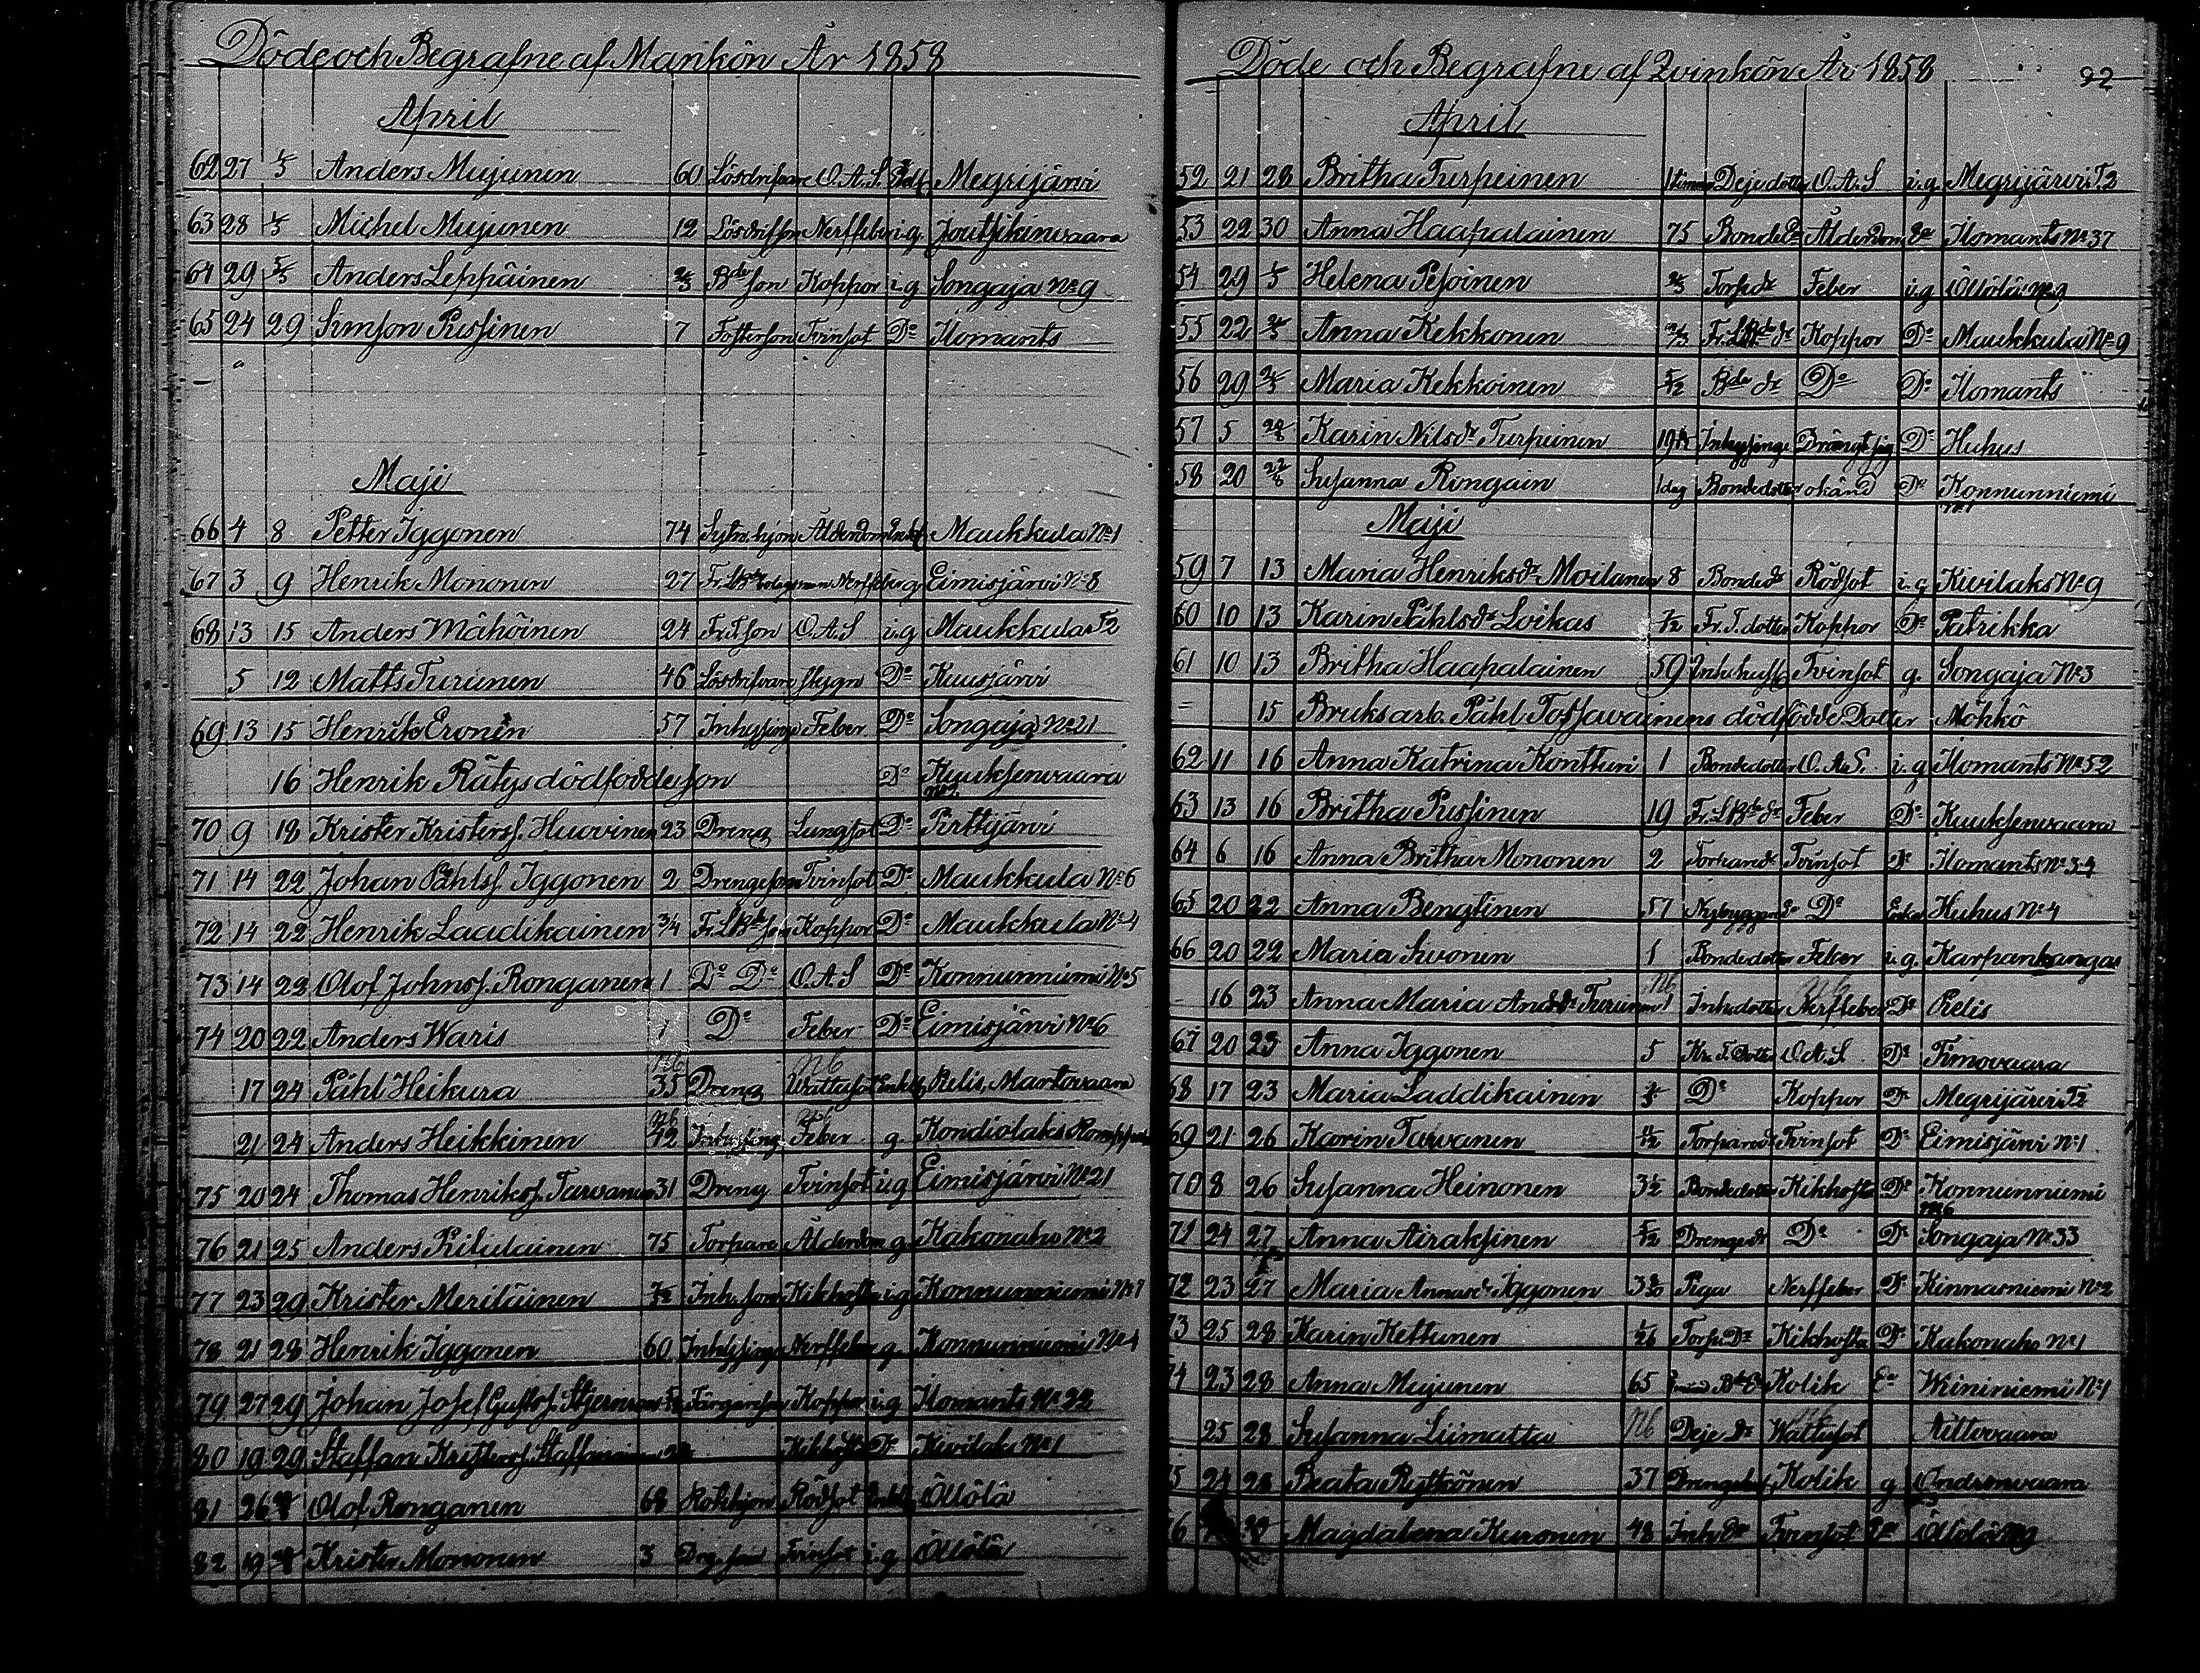 Döde och Begrafne af Mankön År 1858
April
62 27 1/5 Anders Mujunen 60 Lösdrifvare O.A.S. Megrijärvi
63 28 1/5 Michel Mujunen 12 Lösdrifson Nerffeber i.g Joutsikinvaara
64 29 5/5 Anders Leppäinen 2/3 Bde son Koppor i.g Songaja No 9
65 24 29 Simson Pussinen 7 Fosterson Tvinsot Do Ilomants
Maji
66 4 8 Petter Iggonen 74 Sytn.hjon Ålderdom Enkl. Maukkula No 1
67 3 9 Henrik Mononen 27 Nerffeber g Eimisjärvi No 8
68 13 15 Anders Mähöinen 24 Fr.T.son O.A.S i.g Maukkula T2
5 12 Matts Turunen 46 Lösdrifvare Hygn Do Kuusjärvi
69 13 15 Henrik Eronen 57 Inhysinge Feber Do Songaja No 21
16 Henrik Rätys dödfödde son Do Kuuksenvaara
70 9 18 Krister Kristersf. Huovinen 23 Dreng Lungsot Do Pirttijärvi
71 14 22 Johan Påhlsf. Iggonen 2 Drengeson Tvinsot Do Maukkula No 6
72 14 22 Henrik Laudikainen 3/4 Fr.LBde son Koppor Do Maukkula No 4
73 14 22 Olof Johnsf. Ronganen 1 Do Do O.A.S Do Konnunniemi No 5
74 20 22 Anders Waris 1 Do Feber Do Eimisjärvi No 6
17 24 Påhl Heikura 35 Dreng Wattusot Enkl. Pielis, Martovaara
21 24 Anders Heikkinen 42 Inhysing Feber g. Kondiolaks
75 20 24 Thomas Henriksf. Turvanen 31 Dreng Tvinsot i.g Eimisjärvi No 21
76 21 25 Anders Piilulainen 75 Torpare Ålderdom g. Kakonaho No 2
77 23 29 Krister Meriläinen Inh. son Kikhosta i.g Konnunniemi No 1
78 21 28 Henrik Iggonen 60 Inhysinge Nerffeber g. Konnunniemi No 4
79 27 29 Johan Josef Gustfsf. Färgareson Koppor i.g Ilomants No 22
80 19 29 Staffan Kristersf. Kikhosta Do Kivilaks No 1
81 26 Olof Ronganen 68 Rotehjon Rödsot Enkl. Öllölä
82 19 Krister Mononen 3 Drg.son Tvinsot i.g Öllölä
Döde och Begrafne af Qvinkön År 1858
92
April
52 21 28 Britha Turpeinen 1 timme Deje dotter O.A.S i.g Megrijärvi T2
53 22 30 Anna Haapalainen 75 Bonde Ea Ålderdom Ea Ilomants No 37
54 29 1/5 Helena Pesoinen 2/3 Torp.dr Feber i.g Öllölä No 9
55 22 2/5 Anna Kekkonen Fr.LBde dr Koppor Do Maukkula No 9
56 29 2/5 Maria Kekkoinen 5/12 Bde dr Do Do Ilomants
57 5 24/6 Karin Nilsdr Turpeinen 19 Inhysinge Dränkt sig Do Huhus
58 20 22/6 Susanna Rongain 1 dag Bondedotter okänd Do Konnunniemi
Maji
59 7 13 Maria Henriksdr Moilanen 8 Bondedr Rödsot i.g Kivilaks No 9
60 10 13 Karin Påhlsdr Loikas 7/12 Fr.T.dotter Koppor Do Patrikka
61 10 13 Britha Haapalainen 59 Inh.hust. Tvinsot g. Songaja No 3
15 Bruksarb. Påhl Tossavainens dödfödde Dotter Möhkö
62 11 16 Anna Katrina Kontturi 1 Bondedotter O.A.S. i.g Ilomants No 52
63 13 16 Britha Pussinen 19 Fr.LBde dr Feber Do Kuuksenvaara
64 6 16 Anna Britha Mononen 2 Torparedr Tvinsot Do Ilomants No 34
65 20 22 Anna Bengtinen 57 Nybyggare Do Enka Huhus No 4
66 20 22 Maria Sivonen 1 Bondedotter Feber i.g. Karpankangas
16 23 Anna Maria Andrsdr Turunen 1 Inh.dotter Nerffeber Do Pielis
67 20 23 Anna Iggonen 5 Kr.T.Dotter O.A.S. Do Timovaara
68 17 23 Maria Laddikainen Do Koppor Do Megrijärvi T2
69 21 26 Karin Turvanen Torparedr Tvinsot Do Eimisjärvi No 1
70 8 26 Susanna Heinonen 3 1/2 Bondedotter Kikhosta Do Konnunniemi No 6
71 24 27 Anna Airaksinen 5/12 Drengedr Do Do Songaja No 33
72 23 27 Maria Annasdr Iggonen Piga Nerffeber Do Kinnarniemi No 2
73 25 28 Karin Kettunen 1/26 Torp.Dr Kikhosta Do Kakonaho No 1
74 23 28 Anna Mujunen 65 Kolik Ea Wiininiemi No 1
25 28 Susanna Liimatta Deje dr Wattusot Aittovaara
75 24 28 Beata Rytkönen 37 Drengehust. Kolik g Ondronvaara
76 Magdalena Kuronen 48 Inh.Ea Tvinsot Ea Öllölä No 9